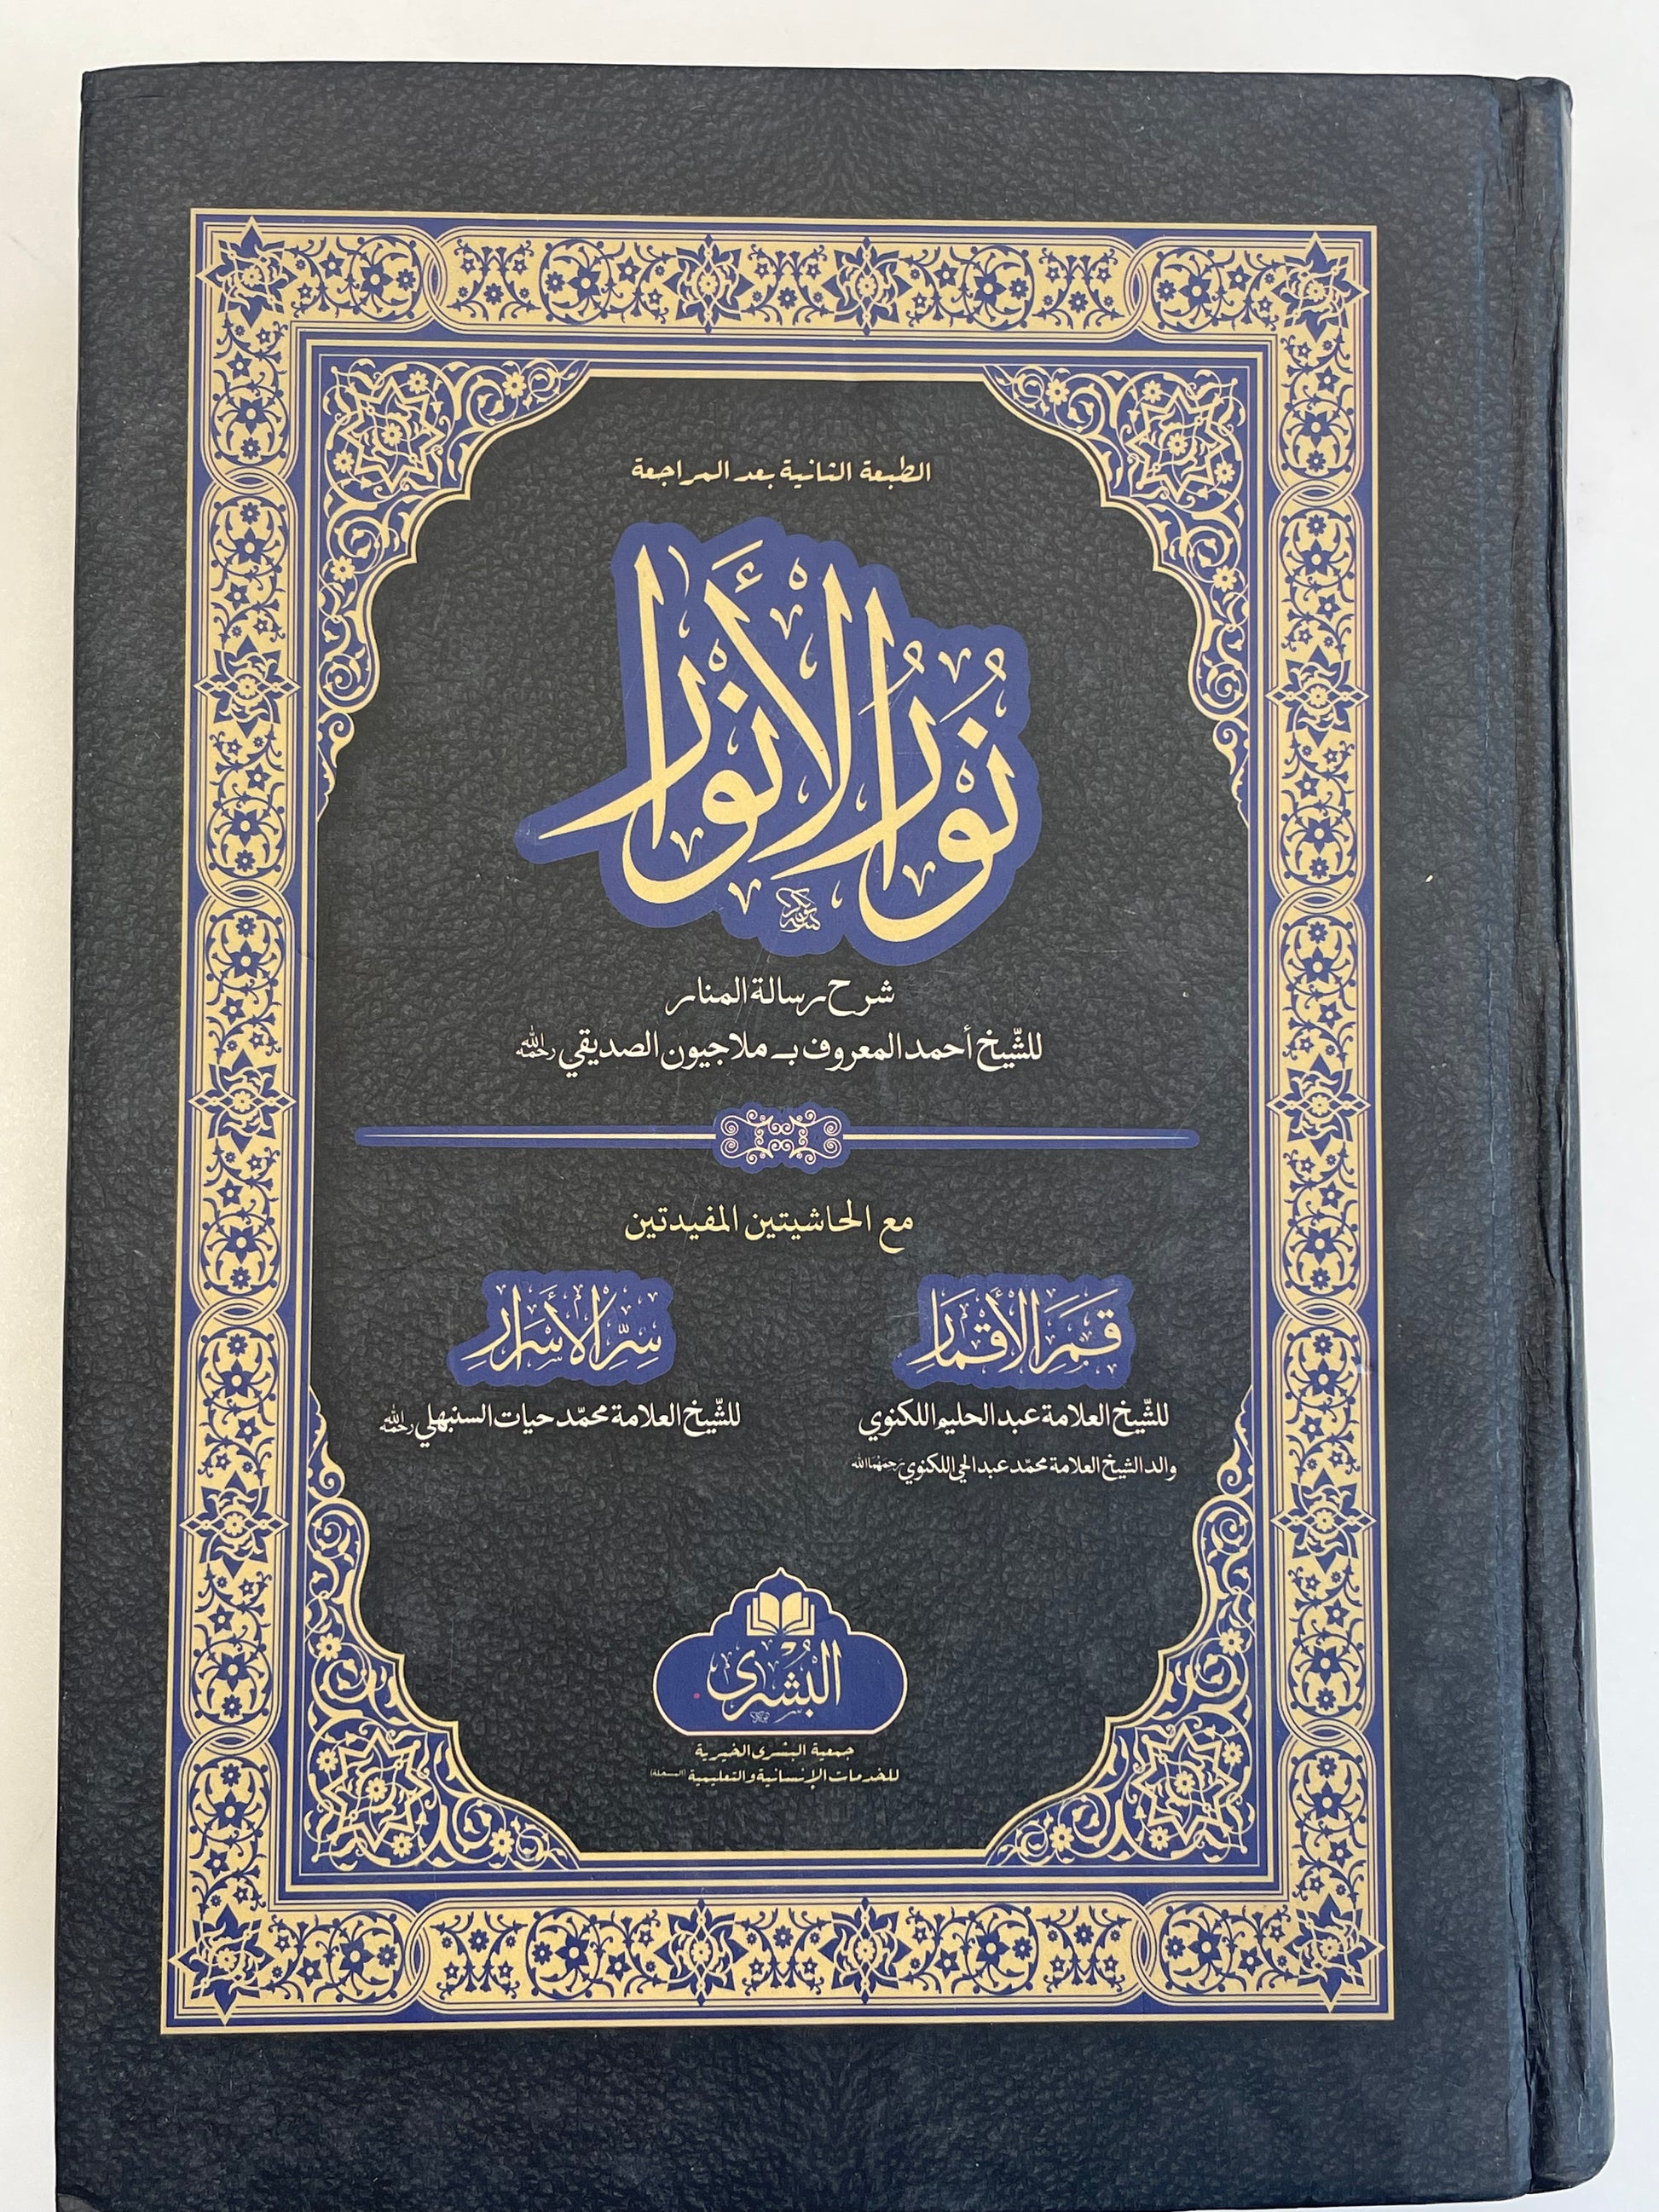 الطبعة الثانية بعد المراجعة
نُوْرُ الْأَنْوَار
شرح رسالة المنار
للشّيخ أحمد المعروف بـ ملاجيون الصديقي رحمه الله
مع الحاشيتين المفيدتين
قَمَرُ الْأَقْمَارِ
للشّيخ العلامة عبد الحليم اللكنوي
والد الشيخ العلامة محمّد عبد الحي اللكنوي رحمهما الله
سِرُّ الْأَسْرَارِ
للشّيخ العلامة محمّد حيات السنبهلي رحمه الله
البُشْرى
جمعية البشرى الخيرية
للخدمات الإنسانية والتعليمية (المسجلة)